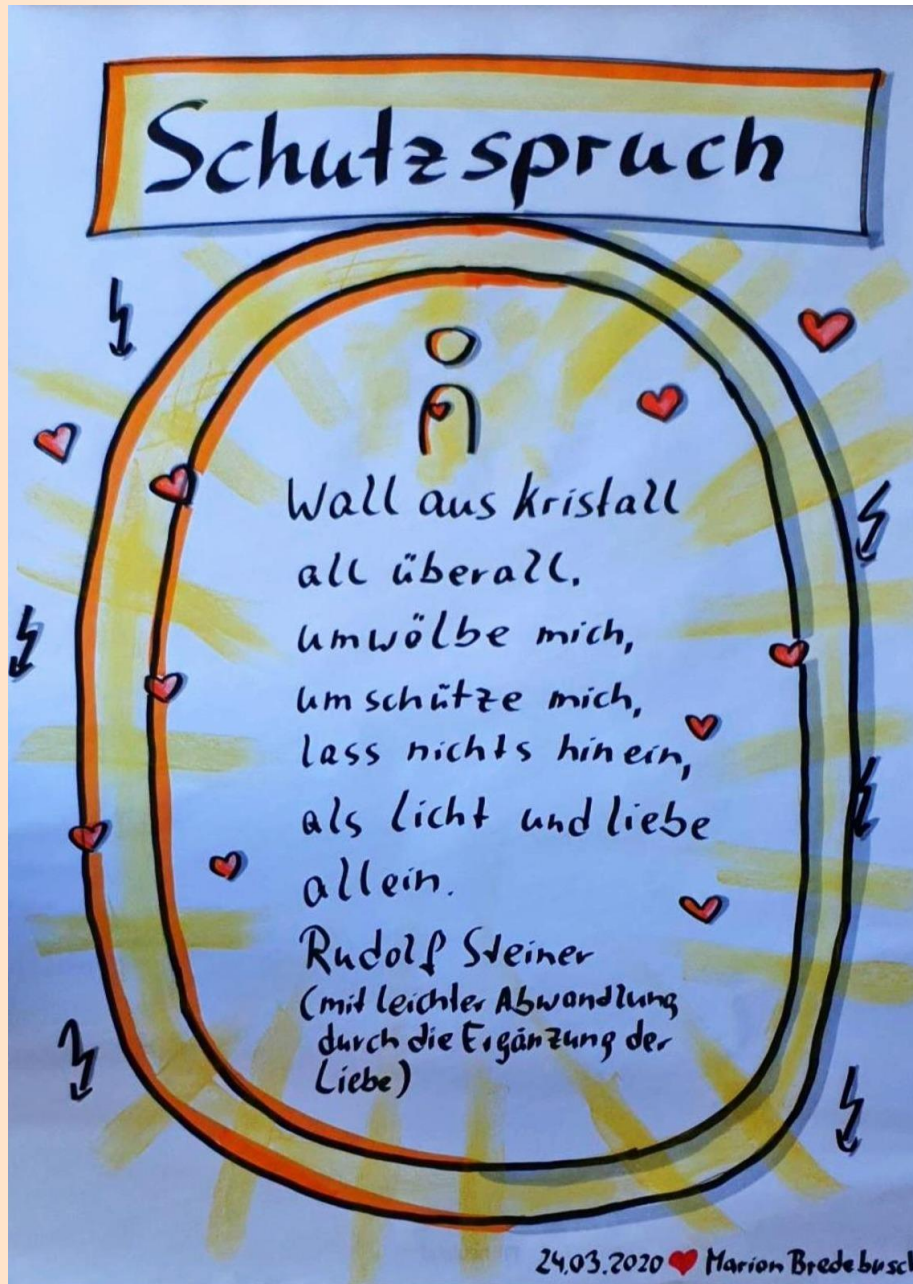 Schutzspruch
Wall aus Kristall
all überall,
umwölbe mich,
umschütze mich,
lass nichts hinein,
als licht und liebe
allein.
Rudolf Steiner
(mit leichter Abwandlung
durch die Ergänzung der
Liebe)
24.03.2020 ❤ Marion Bredebusch